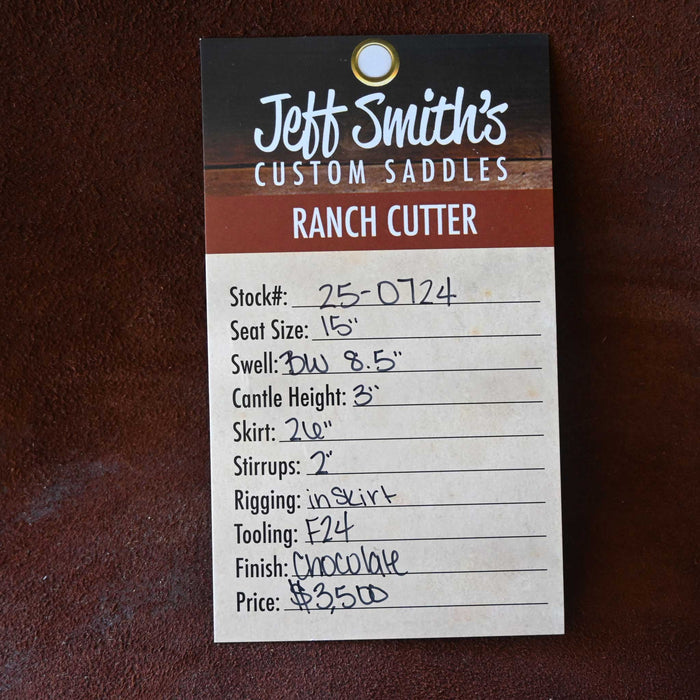 Jeff Smith's
CUSTOM SADDLES
RANCH CUTTER
Stock#: 25-0724
Seat Size: 15"
Swell: BW 8.5"
Cantle Height: 3"
Skirt: 26"
Stirrups: 2"
Rigging: in skirt
Tooling: F24
Finish: Chocolate
Price: $3,500